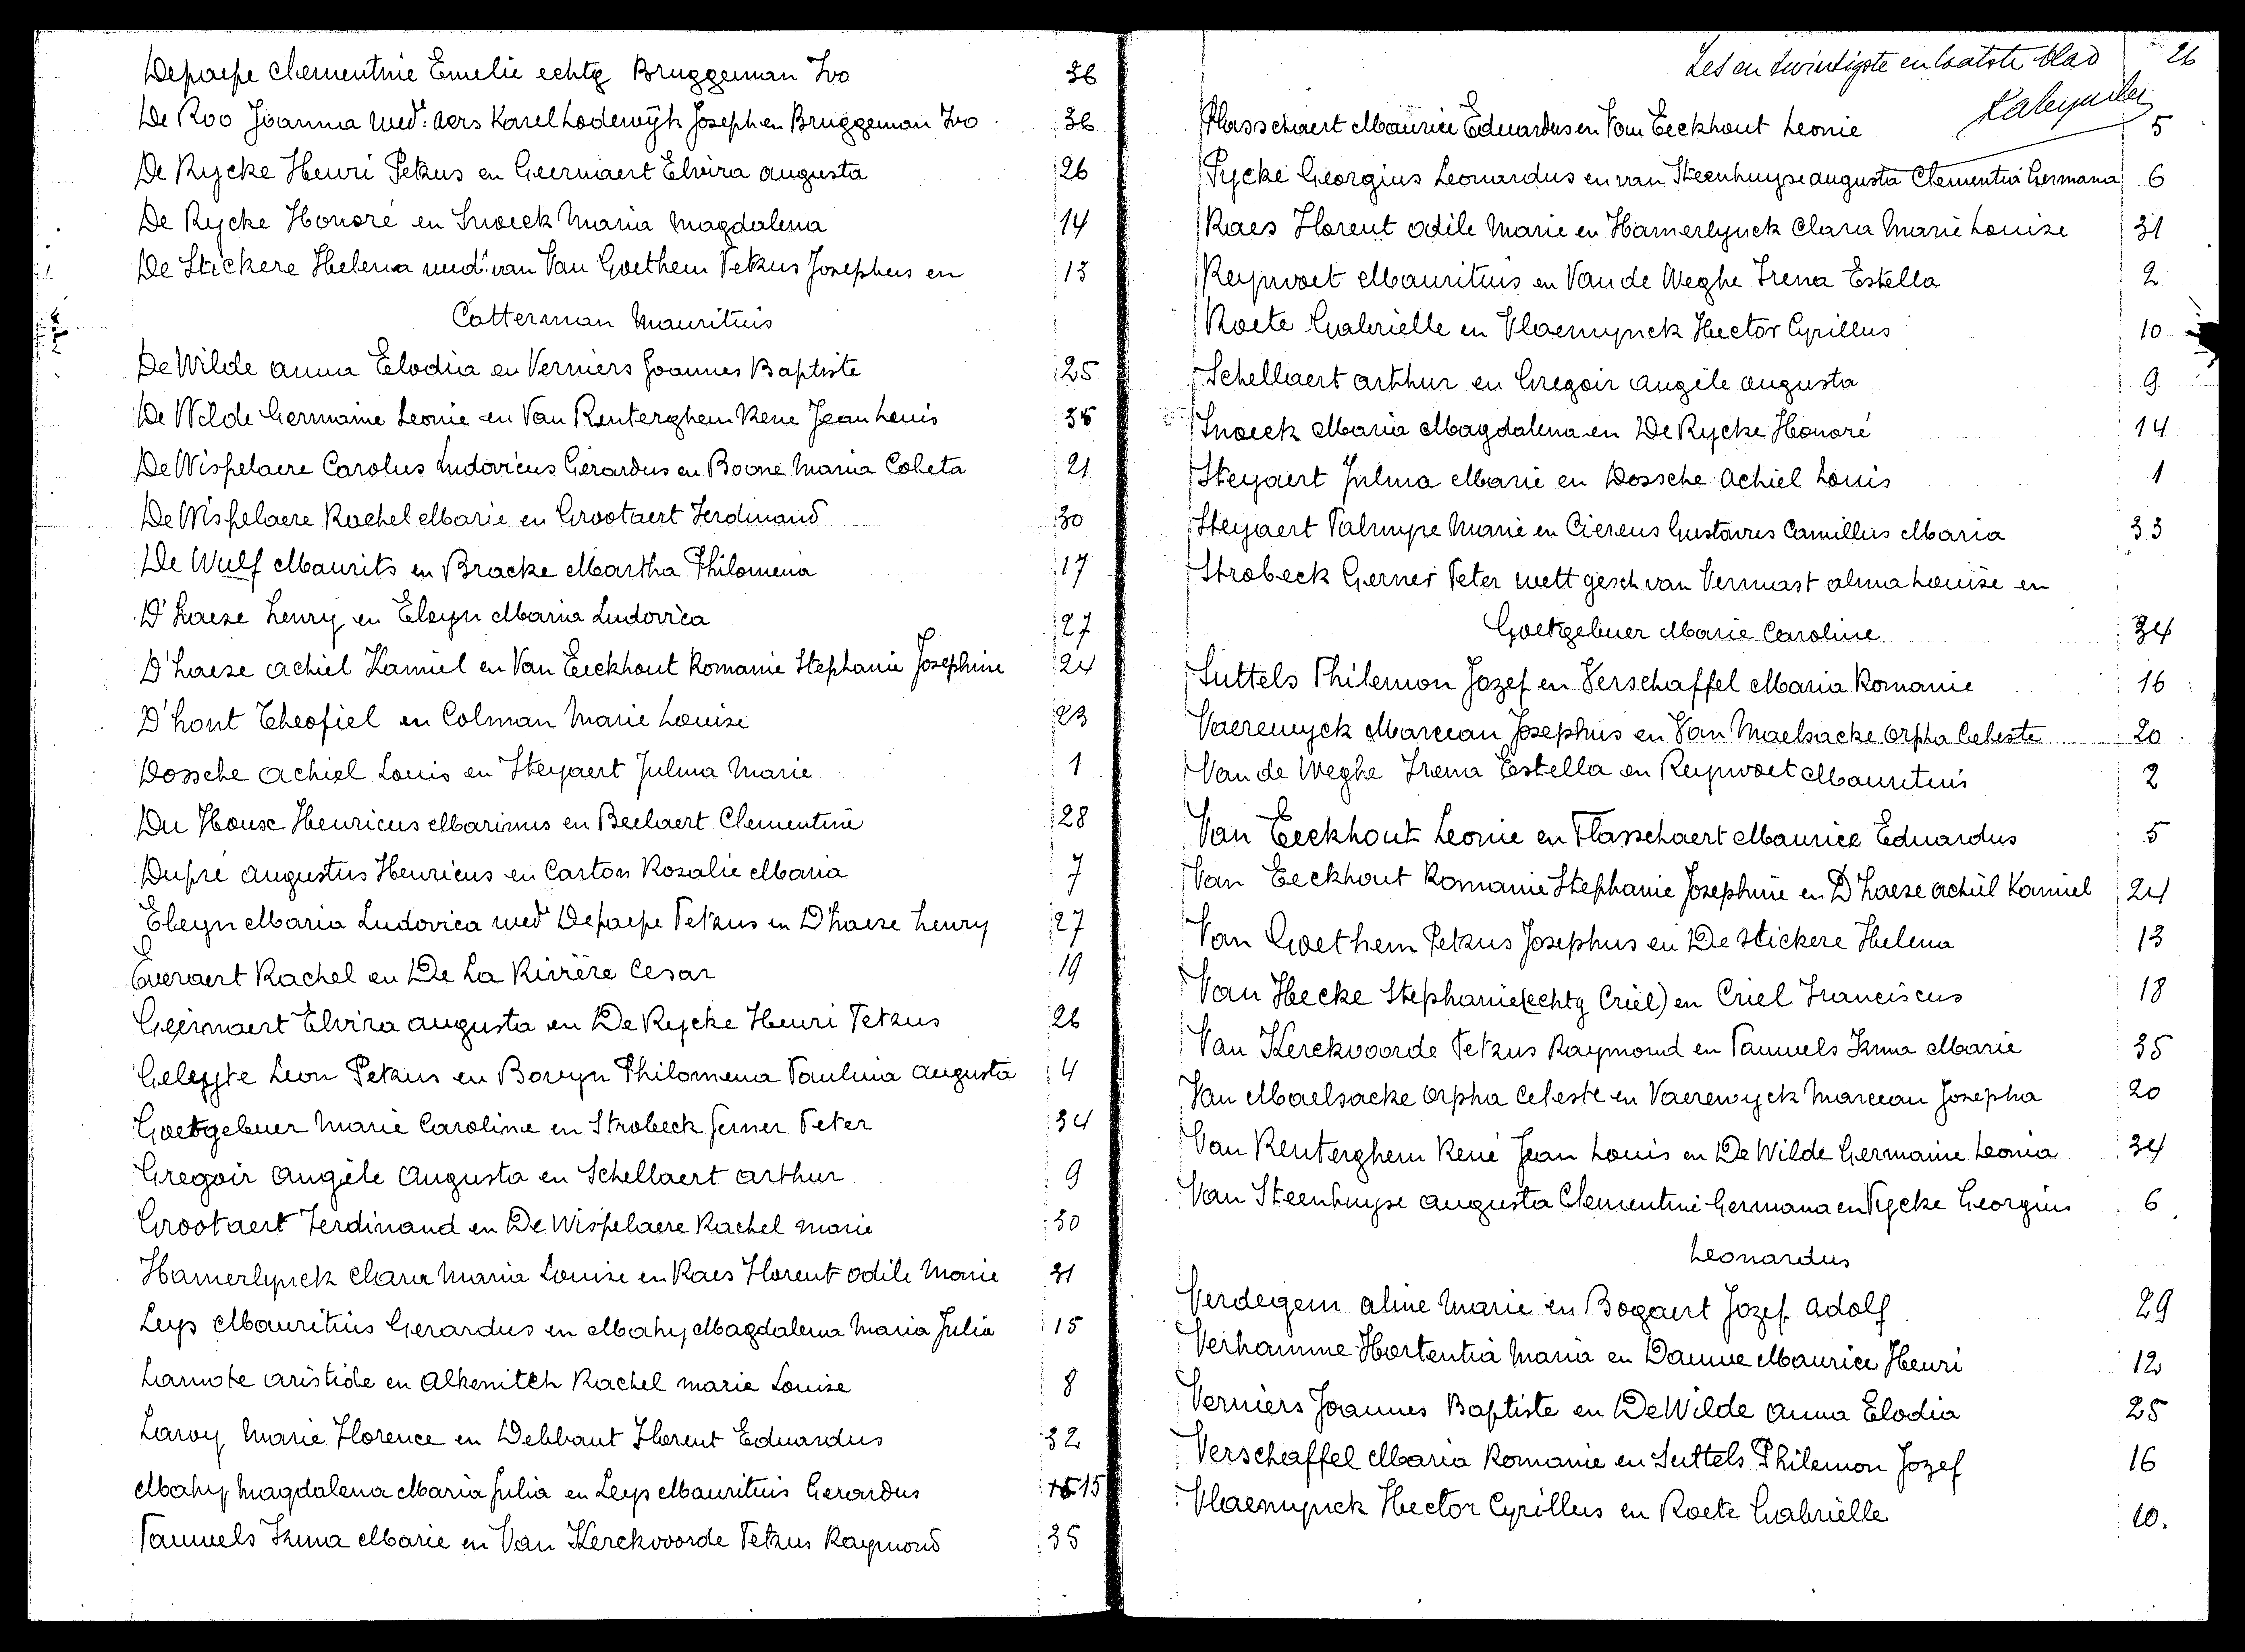 Depaepe Clementine Emelie echtg Bruggeman Ivo 36
De Roo Joanna wed: Aers Karel Lodewijk Joseph en Bruggeman Ivo 36
De Rycke Henri Petrus en Geernaert Elvira Augusta 26
De Rycke Honoré en Snoeck Maria Magdalena 14
De Stickere Helena wed: van Van Goethem Petrus Josephus en 13
Catterman Mauritius
De Wilde Anna Elodia en Verniers Joannes Baptiste 25
De Wilde Germaine Leonie en Van Renterghem Rene Jean Louis
De Wispelaere Carolus Ludovicus Gerardus en Boone Maria Coleta 21
De Wispelaere Rachel Marie en Grootaert Ferdinand 30
De Wulf Maurits en Bracke Martha Philomena 17
D'haese Henry en Eleyn Maria Ludovica 27
D'haese Achiel Kamiel en Van Eeckhout Romanie Stephanie Josephine 24
D'hont Theofiel en Colman Marie Louise 23
Dossche Achiel Louis en Steyaert Julma Marie 1
Du Houx Henricus Marinus en Beelaert Clementine 28
Dupré Augustus Henricus en Carton Rosalie Maria 7
Eleyn Maria Ludovica wed Depaepe Petrus en D'haese Henry 27
Everaert Rachel en De La Rivière Cesar 19
Geernaert Elvira Augusta en De Rycke Henri Petrus 26
Geleyte Leon Petrus en Bovyn Philomena Paulina Augusta 4
Goetgebuer Marie Caroline en Strobeck Gerner Peter 34
Gregoir Angèle Augusta en Schellaert Arthur 9
Grootaert Ferdinand en De Wispelaere Rachel Marie 30
Hamerlynck Clara Maria Louise en Raes Florent Odile Marie 31
Leys Mauritius Gerardus en Mahy Magdalena Maria Julia 15
Lamote Aristide en Alkenitch Rachel Marie Louise 8
Lavoy Marie Florence en Debbaut Florent Eduardus 32
Mahy Magdalena Maria Julia en Leys Mauritius Gerardus 15
Pauwels Irma Marie en Van Kerckvoorde Petrus Raymond 35
Zes en twintigste en laatste blad 26
Plasschaert Maurice Eduardus en Van Eeckhout Leonie 5
Pycke Georgius Leonardus en van Steenhuyse Augusta Clementia Germana 6
Raes Florent Odile Marie en Hamerlynck Clara Marie Louise 31
Reynvoet Mauritius en Van de Weghe Irena Estella 2
Roete Gabrielle en Vlaemynck Hector Cyrillus 10
Schellaert Arthur en Gregoir Angèle Augusta 9
Snoeck Maria Magdalena en De Rycke Honoré 14
Steyaert Julma Marie en Dossche Achiel Louis 1
Steyaert Palmyre Marie en Ciereus Gustavus Camillus Maria 33
Strobeck Gerner Peter wett gesch van Vermast Alma Louise en
Goetgebuer Marie Caroline 34
Suttels Philemon Jozef en Verschaffel Maria Romanie 16
Vaerewyck Marceau Josephus en Van Maelsacke Orpha Celeste 20
Van de Weghe Irena Estella en Reynvoet Mauritius 2
Van Eeckhout Leonie en Plasschaert Maurice Eduardus 5
Van Eeckhout Romanie Stephanie Josephine en D'haese Achiel Kamiel 24
Van Goethem Petrus Josephus en De Stickere Helena 13
Van Hecke Stephanie (echtg Criel) en Criel Franciscus 18
Van Kerckvoorde Petrus Raymond en Pauwels Irma Marie 35
Van Maelsacke Orpha Celeste en Vaerewyck Marceau Josepha 20
Van Renterghem René Jean Louis en De Wilde Germaine Leonia 34
Van Steenhuyse Augusta Clementine Germana en Pycke Georgius 6
Leonardus
Verdegem Aline Marie en Bogaert Jozef Adolf 29
Verhamme Hortentia Maria en Damme Maurice Henri 12
Verniers Joannes Baptiste en De Wilde Anna Elodia 25
Verschaffel Maria Romanie en Suttels Philemon Jozef 16
Vlaemynck Hector Cyrillus en Roete Gabrielle 10.